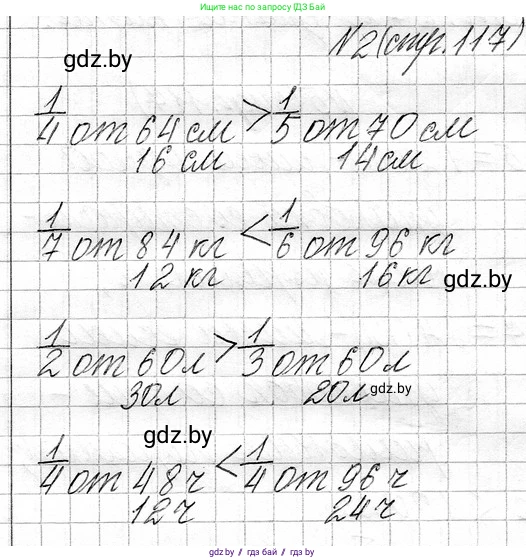 Ищите нас по запросу ГДЗ БАЙ
№2 (стр. 117)
gdz.by
1/4 от 64 см > 1/5 от 70 см
16 см 14 см
1/7 от 84 кг < 1/6 от 96 кг
12 кг 16 кг gdz.by
1/2 от 60 л > 1/3 от 60 л
30 л 20 л gdz.by
gdz.by
1/4 от 48 ч < 1/4 от 96 ч
12 ч 24 ч
gdz.by / гдз бай / gdz.by